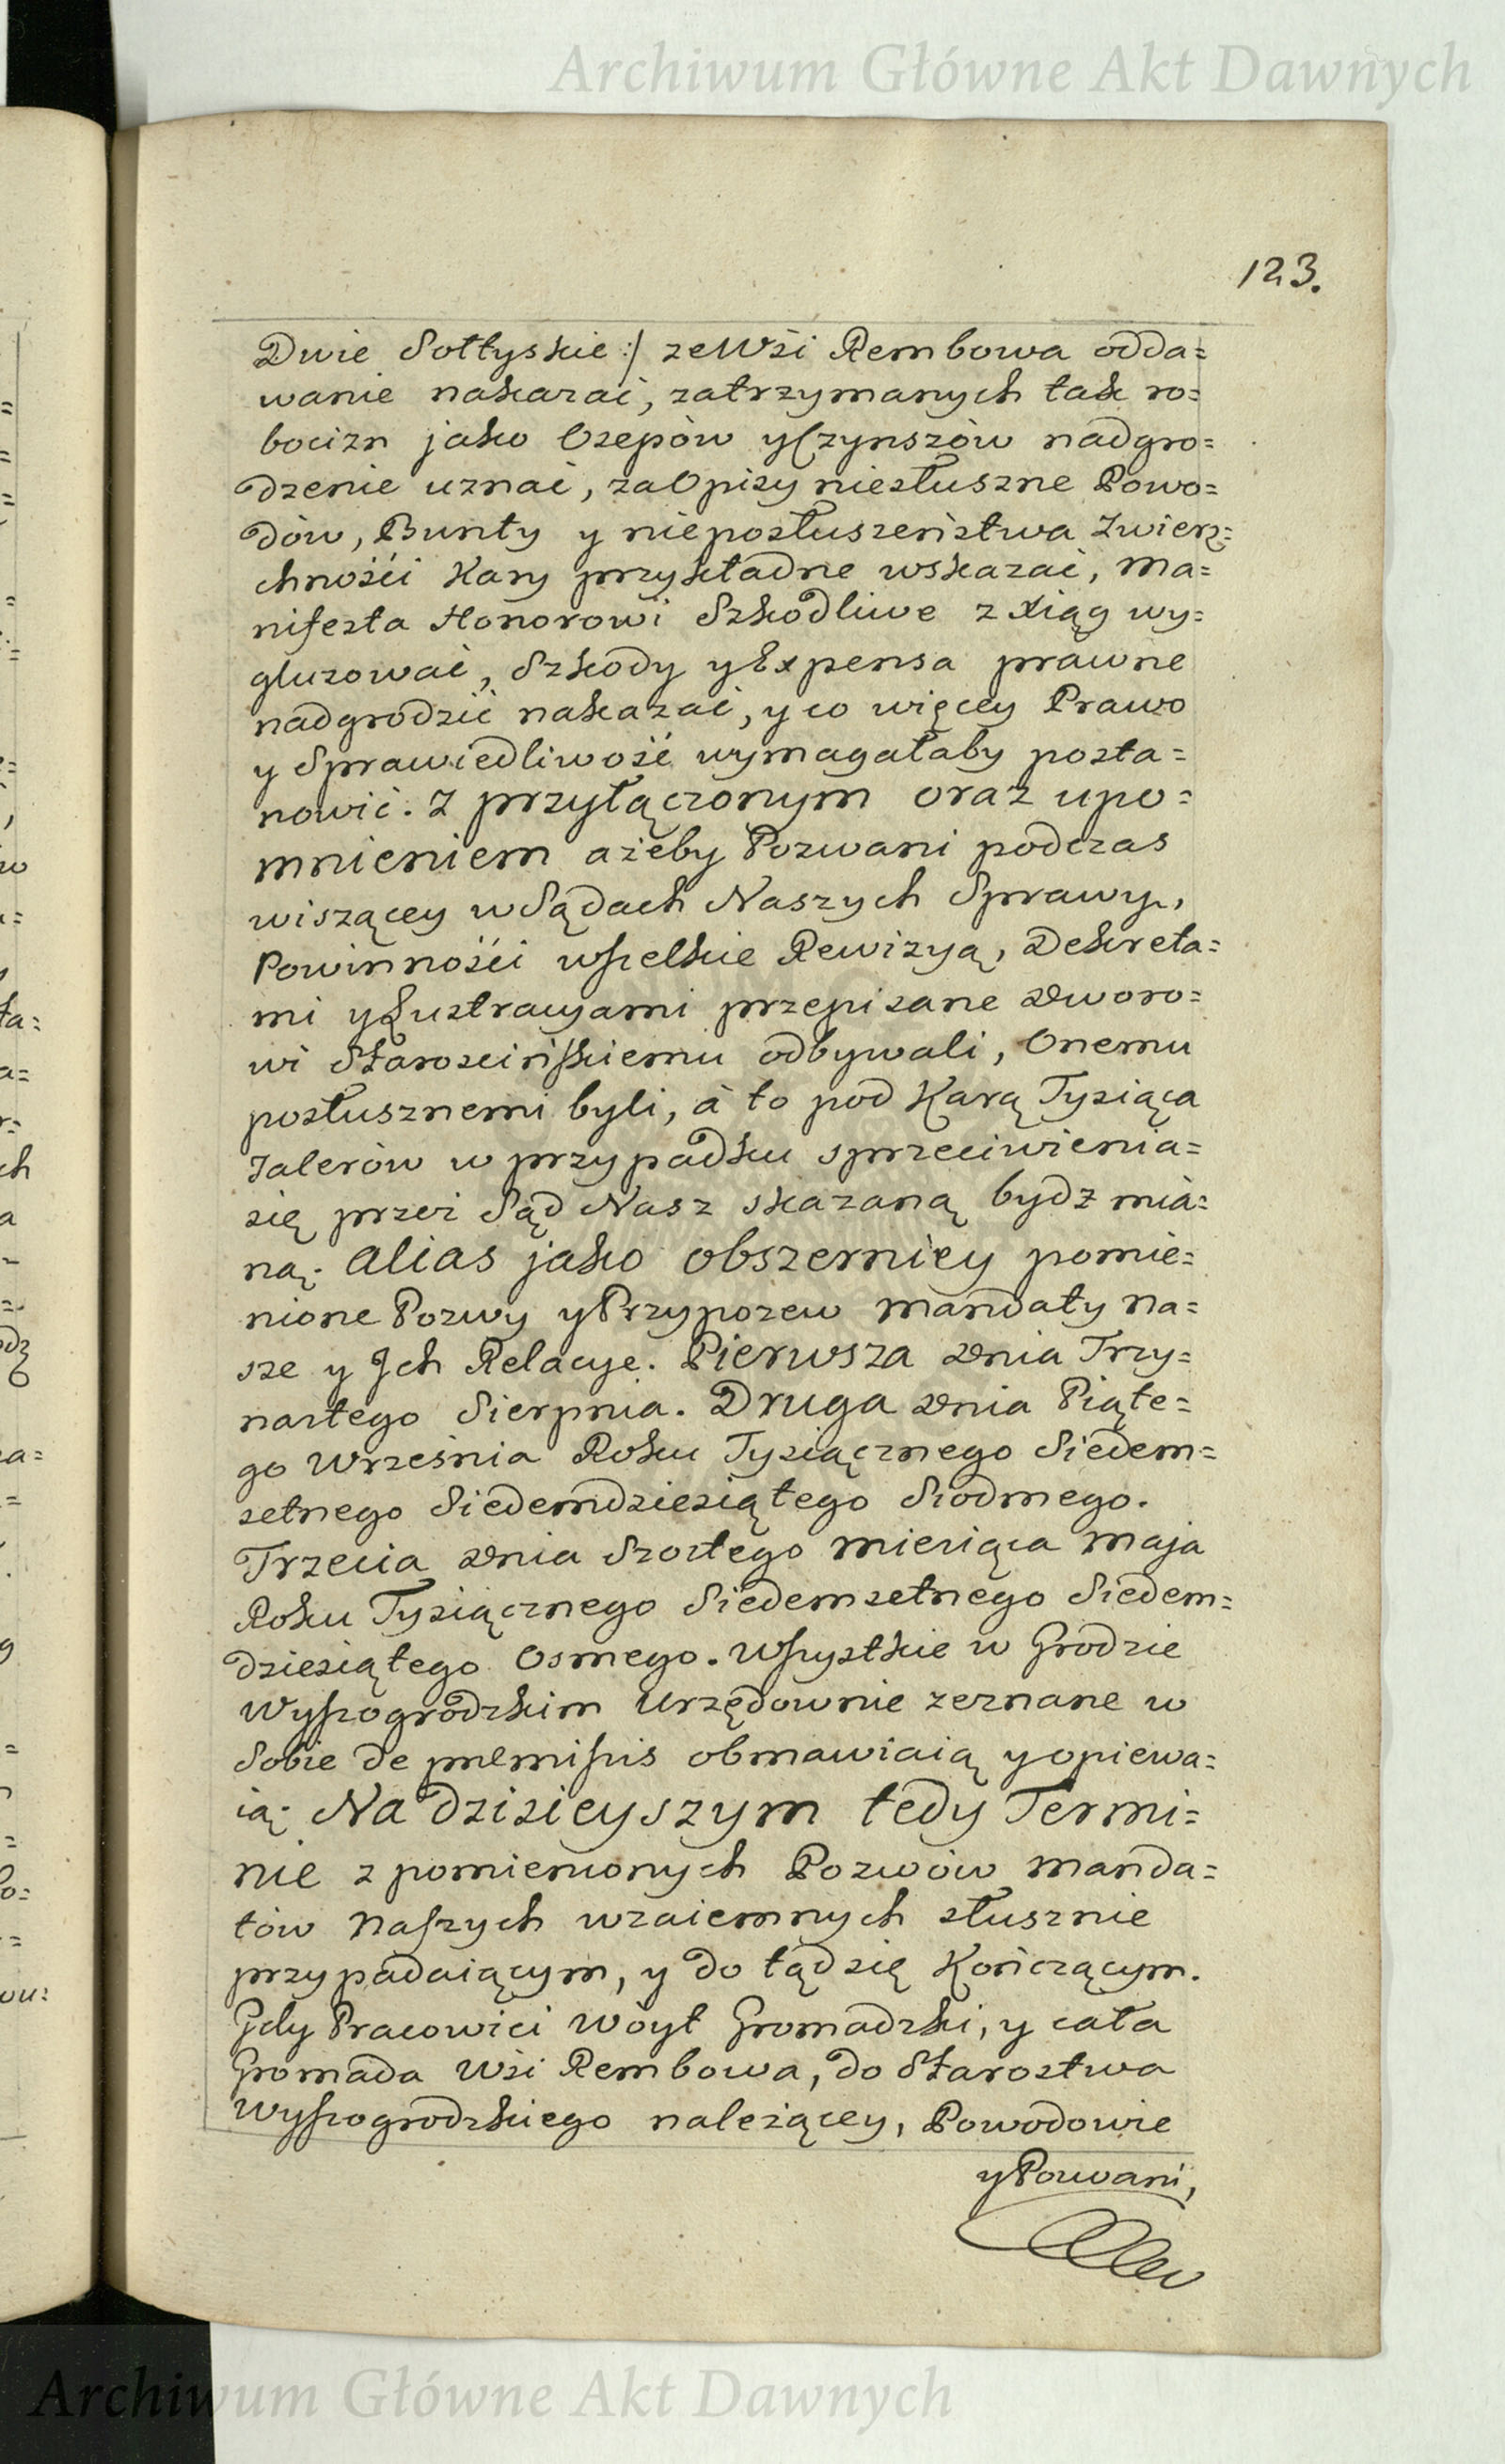 Archiwum Główne Akt Dawnych
123.
Dwie Sołtyskie :/ ze Wsi Rembowa odda=
wanie nakazać, zatrzymanych tak ro=
bocizn jako Osepów y Czynszów nadgro=
dzenie uznać, za Opisy niesłuszne Powo=
dów, Bunty y nieposłuszeństwa Zwierz=
chności Kary przykładne wskazać, Ma=
nifesta Honorowi Szkodliwe z Xiąg wy=
gluzować, Szkody y Expensa prawne
nadgrodzić nakazać, y co więcey Prawo
y Sprawiedliwość wymagałaby posta=
nowić. Z przyłączonym oraz upo=
mnieniem ażeby Pozwani podczas
wiszącey w Sądach Naszych Sprawy,
Powinności wszelkie Rewizyą, Dekreta=
mi y Lustracyami przepisane Dworo=
wi Starościńskiemu odbywali, Onemu
posłusznemi byli, à to pod Karą Tysiąca
Talerów w przypadku sprzeciwienia=
się przez Sąd Nasz skazaną bydz mia=
ną. Alias jako obszerniey pomie=
nione Pozwy y Przypozew Mandaty na=
sze y Ich Relacye. Pierwsza Dnia Trzy=
nastego Sierpnia. Druga Dnia Piąte=
go Września Roku Tysiącznego Siedem=
setnego Siedemdziesiątego Siodmego.
Trzecia Dnia Szostego Miesiąca Maja
Roku Tysiącznego Siedemsetnego Siedem=
dziesiątego Osmego. Wszystkie w Grodzie
Wyszogrodzkim Urzędownie zeznane w
Sobie de præmissis obmawiaią y opiewa=
ią. Na dzisieyszym tedy Termi=
nie z pomienionych Pozwów Manda=
tów Naszych wzaiemnych słusznie
przypadaiącym, y do tąd się Kończącym.
Gdy Pracowici Woyt Gromadzki, y cała
Gromada Wsi Rembowa, do Starostwa
Wyszogrodzkiego należącey, Powodowie
y Pozwani,
Archiwum Główne Akt Dawnych